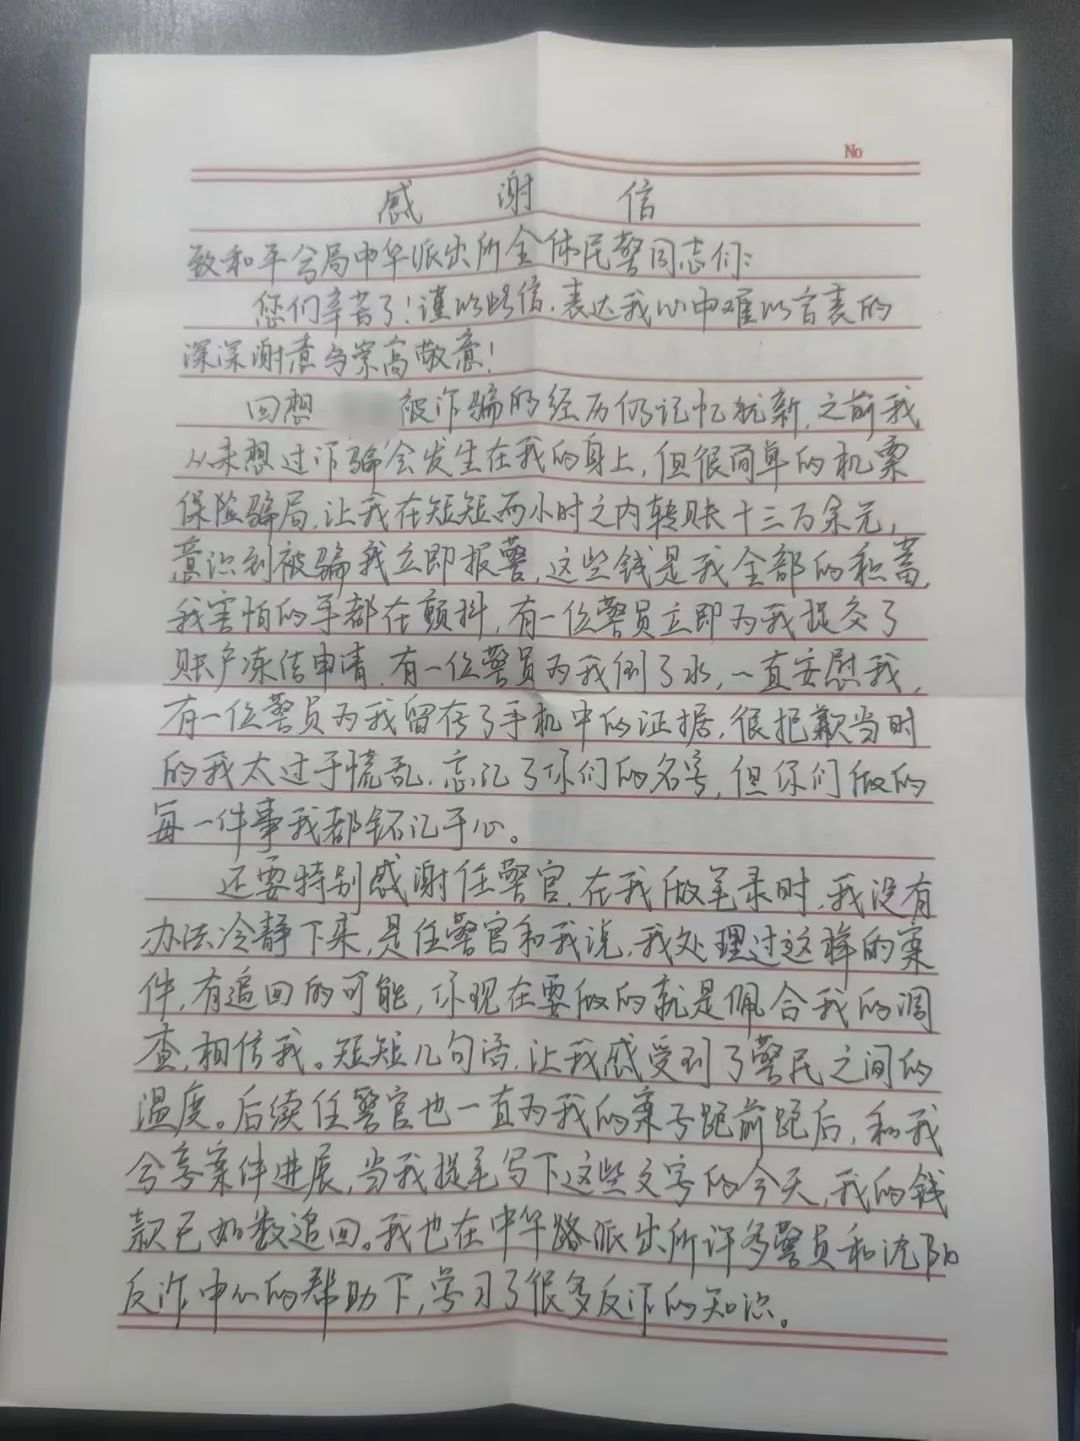 No
感谢信
致和平分局中华派出所全体民警同志们:
您们辛苦了!谨以此信,表达我心中难以言表的
深深谢意与崇高敬意!
回想 被诈骗的经历仍记忆犹新,之前我
从未想过诈骗会发生在我的身上,但很简单的机票
保险骗局,让我在短短两小时之内转账十三万余元,
意识到被骗我立即报警,这些钱是我全部的积蓄,
我害怕的手都在颤抖,有一位警员立即为我提交了
账户冻结申请,有一位警员为我倒了水,一直安慰我,
有一位警员为我留存了手机中的证据,很抱歉当时
的我太过于慌乱,忘记了你们的名字,但你们做的
每一件事我都铭记于心。
还要特别感谢任警官,在我做笔录时,我没有
办法冷静下来,是任警官和我说,我处理过这样的案
件,有追回的可能,你现在要做的就是佩合我的调
查,相信我。短短几句话,让我感受到了警民之间的
温度。后续任警官也一直为我的案子跑前跑后,和我
分享案件进展,当我提笔写下这些文字的今天,我的钱
款已如数追回。我也在中华路派出所许多警员和沈阳
反诈中心的帮助下,学习了很多反诈的知识。